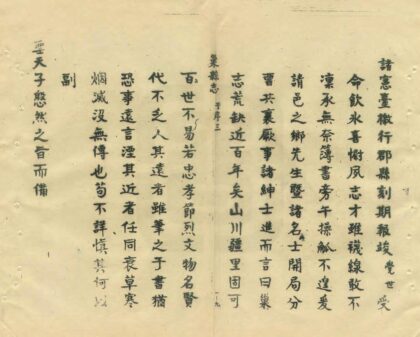 諸憲臺檄行郡縣刻期報竣覺世受
命飲氷喜慚夙志才雖襪線敢不
凜承無奈簿書旁午操觚不遑爰
請邑之鄉先生暨諸名士開局分
曹共襄厥事諸紳士進而言曰巢
志荒缺近百年矣山川疆里固可
巢縣志
于序三
一九
百世不易若忠孝節烈文物名賢
代不乏人其遠者雖筆之于書猶
恐事遠言湮其近者任同衰草寒
烟滅沒無傳也苟不詳慎其何以
副
聖天子慇然之旨而備